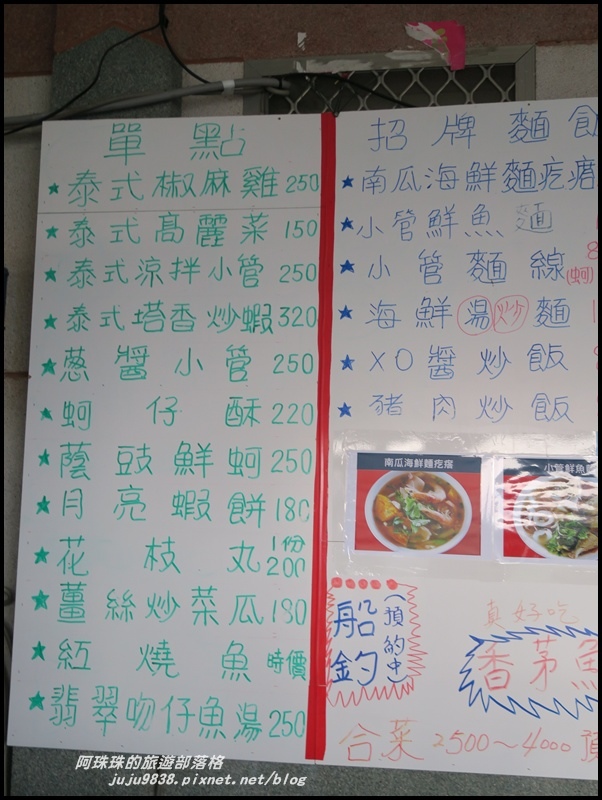 單點
★泰式椒麻雞250
★泰式高麗菜150
★泰式涼拌小管250
★泰式塔香炒蝦320
★蔥醬小管250
★蚵仔酥220
★蔭豉鮮蚵250
★月亮蝦餅180
★花枝丸1份200
★薑絲炒菜瓜180
★紅燒魚時價
★翡翠吻仔魚湯250
招牌麵飯
★南瓜海鮮麵疙瘩
★小管鮮魚麵
★小管麵線(蚵)
★海鮮湯炒麵
★XO醬炒飯
★豬肉炒飯
南瓜海鮮麵疙瘩
小管鮮魚
船釣(預約中)
真好吃
香茅魚
合菜2500~4000預
阿珠珠的旅遊部落格
juju9838.pixnet.net/blog